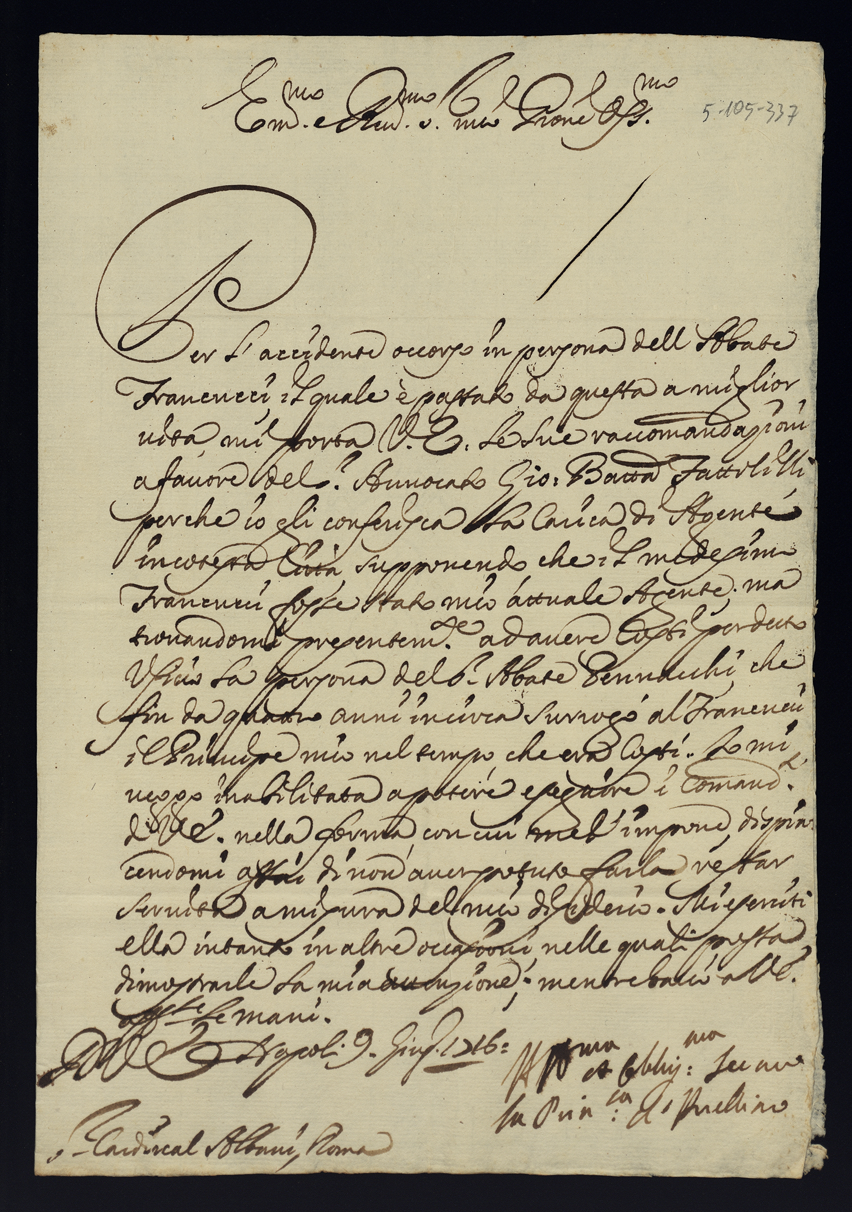 Em.mo e Rev.mo S. mio Prone Oss.mo
5-105-337
Per l'accidente occorso in persona dell Abbate
Francucci, il quale è passato da questa a miglior
vita, mi porta V. E. le sue raccomandazioni
a favore del S.r Avvocato Gio: Batta
perche io gli conferisca la Carica di Agente
in cotesta Città supponendo che il medesimo
Francucci fosse stato mio attuale Agente; ma
trovandomi presentem.te ad avere costì per detto
Ufizio la persona del S.r Abbate Pennacchi, che
fin da quattro anni in circa surrogò al Francucci
il Principe mio nel tempo che era costì. Io mi
veggo inabilitata a potere eseguire i Comand.ti
di V. E. nella forma con cui me l'impone, dispia-
cendomi assai di non aver potuto farla restar
servita a misura del mio desiderio. Mi eserciti
ella intanto in altre occasioni, nelle quali possa
dimostrarle la mia attenzione; mentre bacio a V. E.
aff.te le mani.
D V E Napoli 9. Giug. 1716:
Aff.ma et Obblig:ma
la Prin:sa d'Avellino
S.r Cardinal Albani, Roma